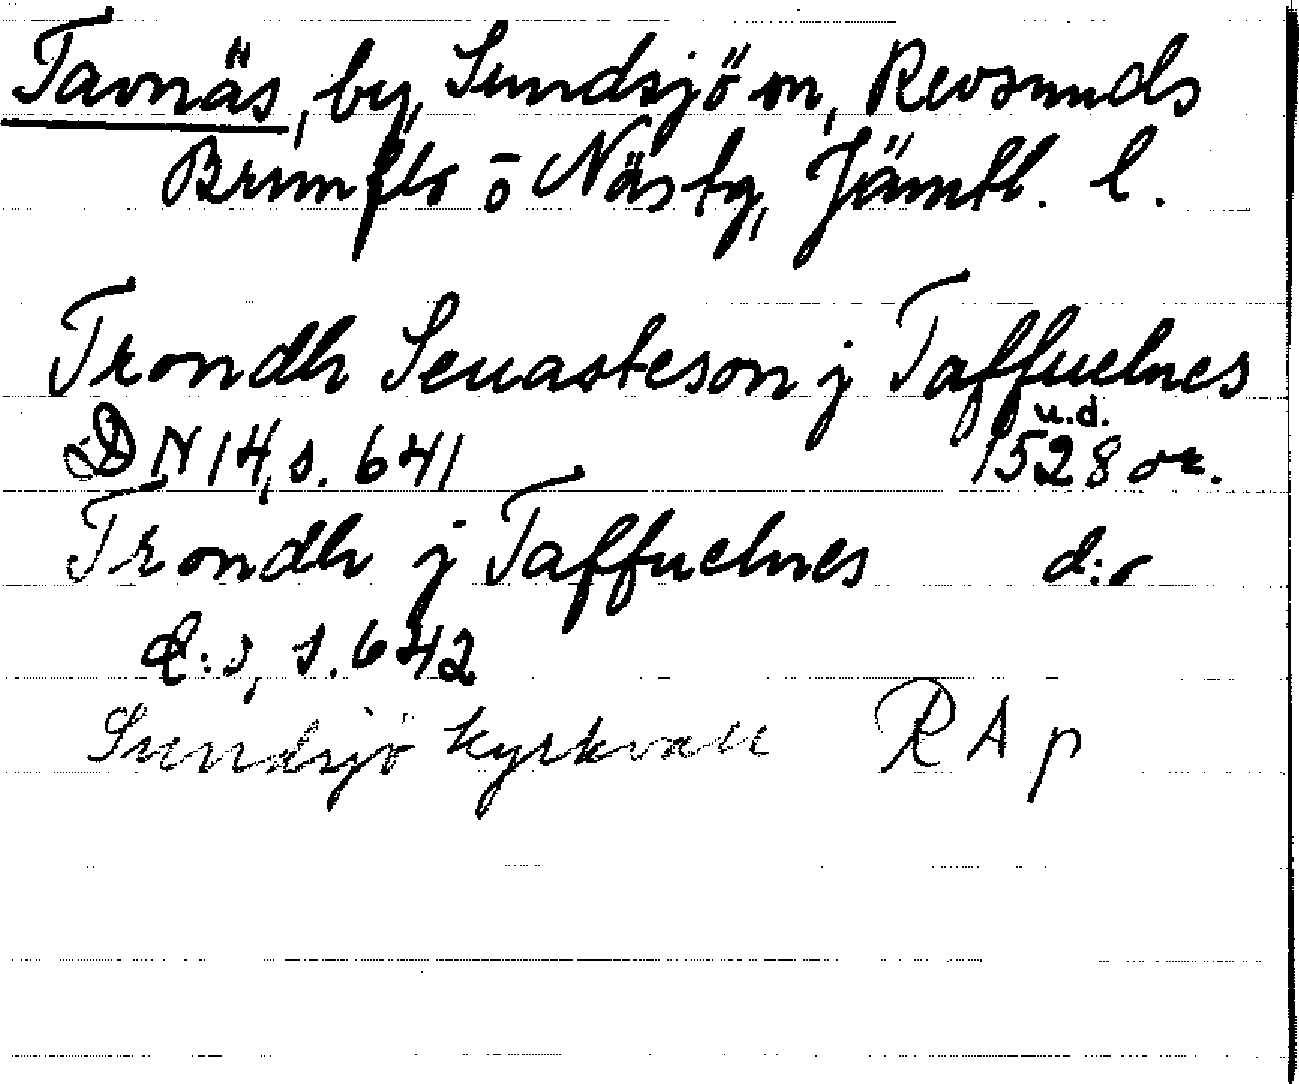 Tavnäs, by, Sundsjö sn, Revsunds
Brunflo o Näs tg, Jämtl. l.
Trondh Seuasteson j Taffuelnes
u.d.
DN 14, s. 641 1528 or.
Trondh j Taffuelnes d:o
d:o, s. 642
Sundsjö kyrkvall RAp